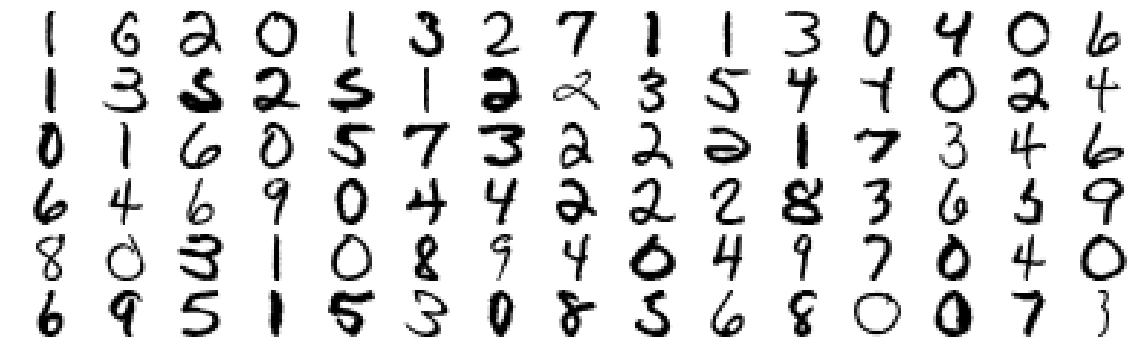 1 6 2 0 1 3 2 7 1 1 3 0 4 0 6
1 3 5 2 5 1 2 2 3 5 4 4 0 2 4
0 1 6 0 5 7 3 2 2 2 1 7 3 4 6
6 4 6 9 0 4 4 2 2 2 8 3 6 5 9
8 0 3 1 0 8 9 4 0 4 9 7 0 4 0
6 9 5 1 5 3 0 8 5 6 8 0 0 7 3